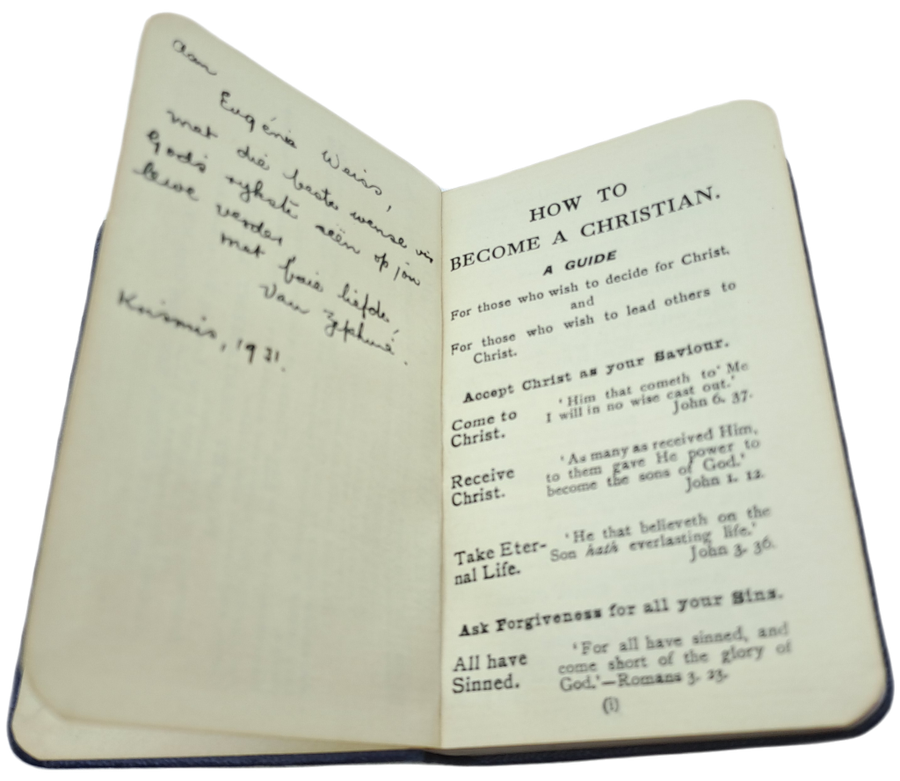 Aan
Eugénia Weiss,
met die beste wense vir
God's rykste seën op jou
lewe verder
met baie liefde,
van
Kersmis, 1931.
HOW TO
BECOME A CHRISTIAN.
A GUIDE
For those who wish to decide for Christ.
and
For those who wish to lead others to
Christ.
Accept Christ as your Saviour.
Come to
Christ.
'Him that cometh to Me
I will in no wise cast out.'
John 6. 37.
Receive
Christ.
'As many as received Him,
to them gave He power to
become the sons of God.'
John 1. 12.
Take Eter-
nal Life.
'He that believeth on the
Son hath everlasting life.'
John 3. 36.
Ask Forgiveness for all your Sins.
All have
Sinned.
'For all have sinned, and
come short of the glory of
God.'—Romans 3. 23.
(1)